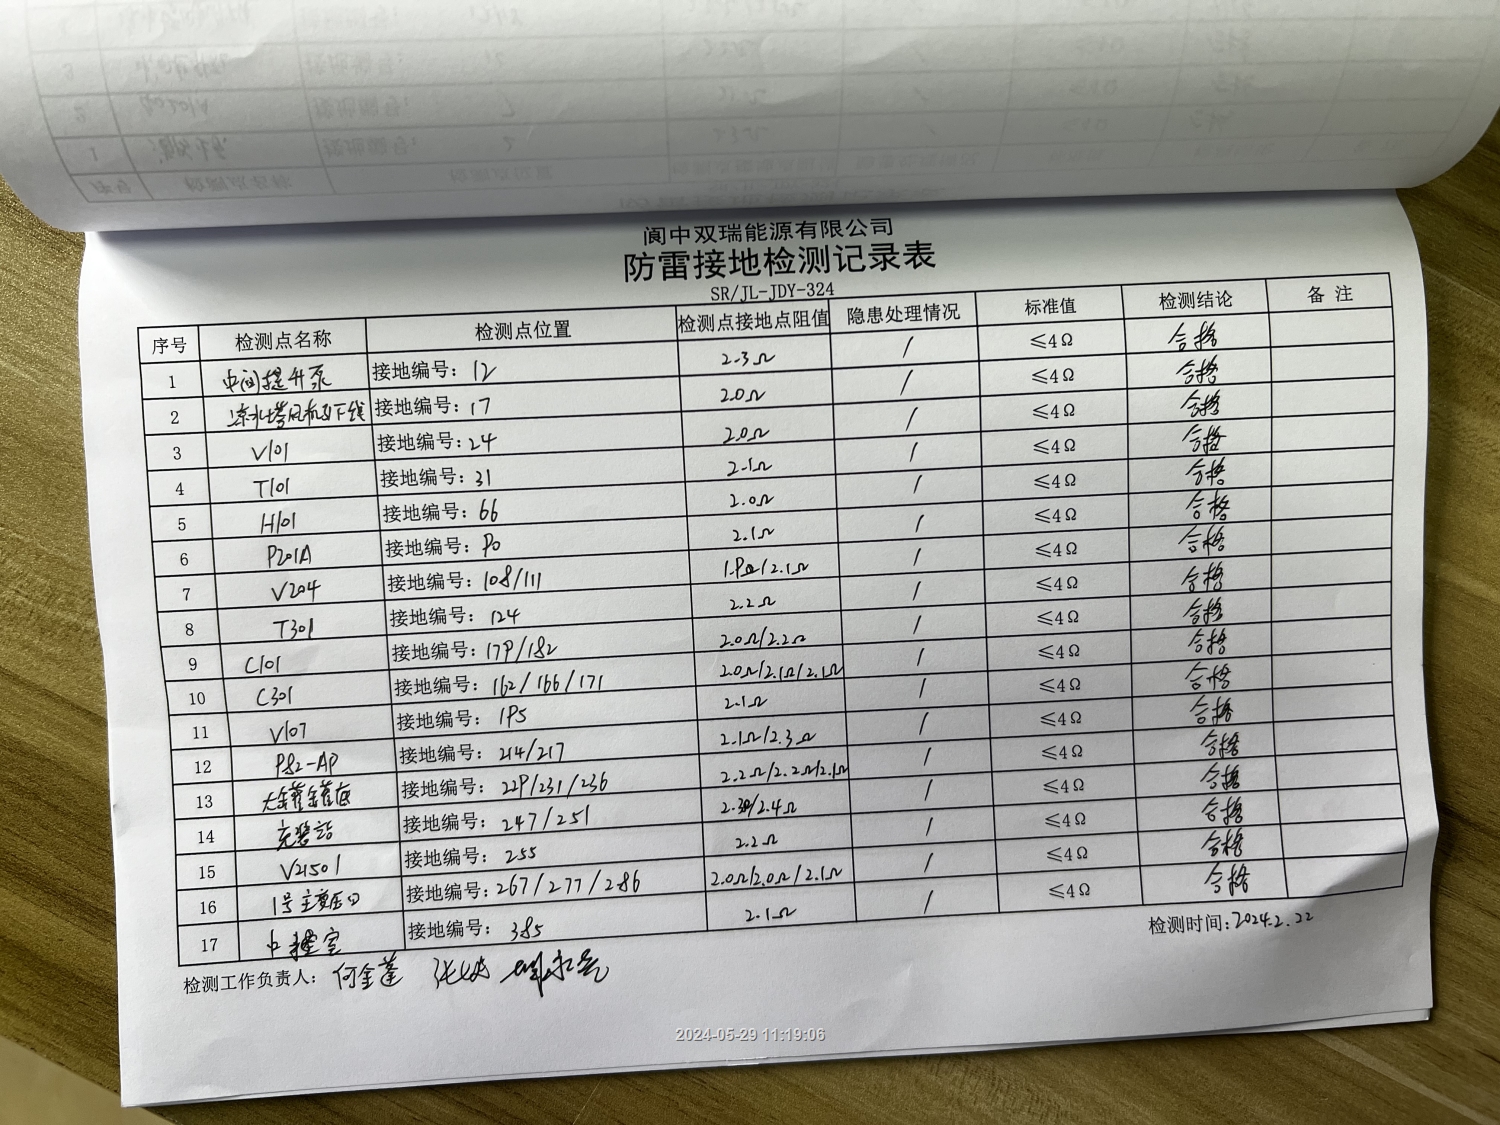 阆中双瑞能源有限公司
防雷接地检测记录表
SR/JL-JDY-324
序号 检测点名称 检测点位置 检测点接地点阻值 隐患处理情况 标准值 检测结论 备 注
1 中间提升泵 接地编号：12 2.3Ω / ≤4Ω 合格
2 凉水塔风机引下线 接地编号：17 2.0Ω / ≤4Ω 合格
3 V101 接地编号：24 2.0Ω / ≤4Ω 合格
4 T101 接地编号：31 2.1Ω / ≤4Ω 合格
5 H101 接地编号：66 2.0Ω / ≤4Ω 合格
6 P201A 接地编号：90 2.1Ω / ≤4Ω 合格
7 V204 接地编号：108/111 1.9Ω/2.1Ω / ≤4Ω 合格
8 T301 接地编号：124 2.2Ω / ≤4Ω 合格
9 C101 接地编号：179/182 2.0Ω/2.2Ω / ≤4Ω 合格
10 C301 接地编号：162/166/171 2.0Ω/2.1Ω/2.1Ω / ≤4Ω 合格
11 V107 接地编号：195 2.1Ω / ≤4Ω 合格
12 P82-AP 接地编号：214/217 2.1Ω/2.3Ω / ≤4Ω 合格
13 接地编号：229/231/236 2.2Ω/2.2Ω/2.1Ω / ≤4Ω 合格
14 充装站 接地编号：247/251 2.3Ω/2.4Ω / ≤4Ω 合格
15 V21501 接地编号：255 2.2Ω / ≤4Ω 合格
16 1号主变压口 接地编号：267/277/286 2.0Ω/2.0Ω/2.1Ω / ≤4Ω 合格
17 中控室 接地编号：385 2.1Ω / ≤4Ω 合格
检测工作负责人：何金蓬
检测时间：2024.2.22
2024-05-29 11:19:06